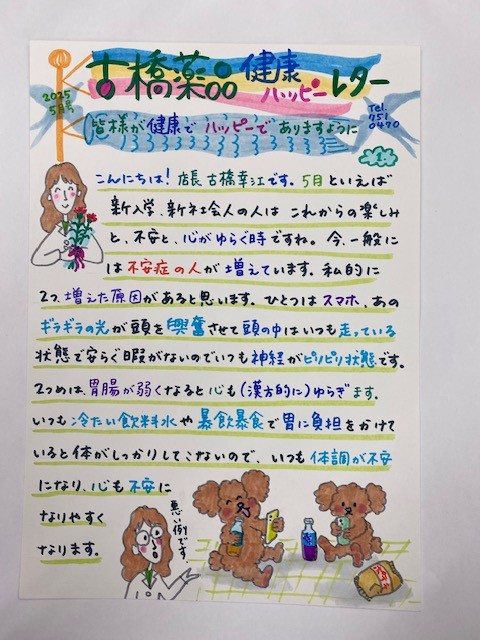 古橋薬品 健康ハッピーレター
2025
5月号
Tel.
751
0470
皆様が健康でハッピーでありますように
こんにちは! 店長 古橋幸江です。5月といえば
新入学、新社会人の人は これからの楽しみ
と、不安と、心がゆらぐ時ですね。今、一般に
は不安症の人が増えています。私的に
2つ、増えた原因があると思います。ひとつはスマホ、あの
ギラギラの光が頭を興奮させて頭の中はいつも走っている
状態で安らぐ暇がないのでいつも神経がピリピリ状態です。
2つめは、胃腸が弱くなると心も(漢方的に)ゆらぎます。
いつも冷たい飲料水や暴飲暴食で胃に負担をかけて
いると体がしっかりしてこないので、いつも体調が不安
になり、心も不安に
なりやすく
なります。
悪い例です。